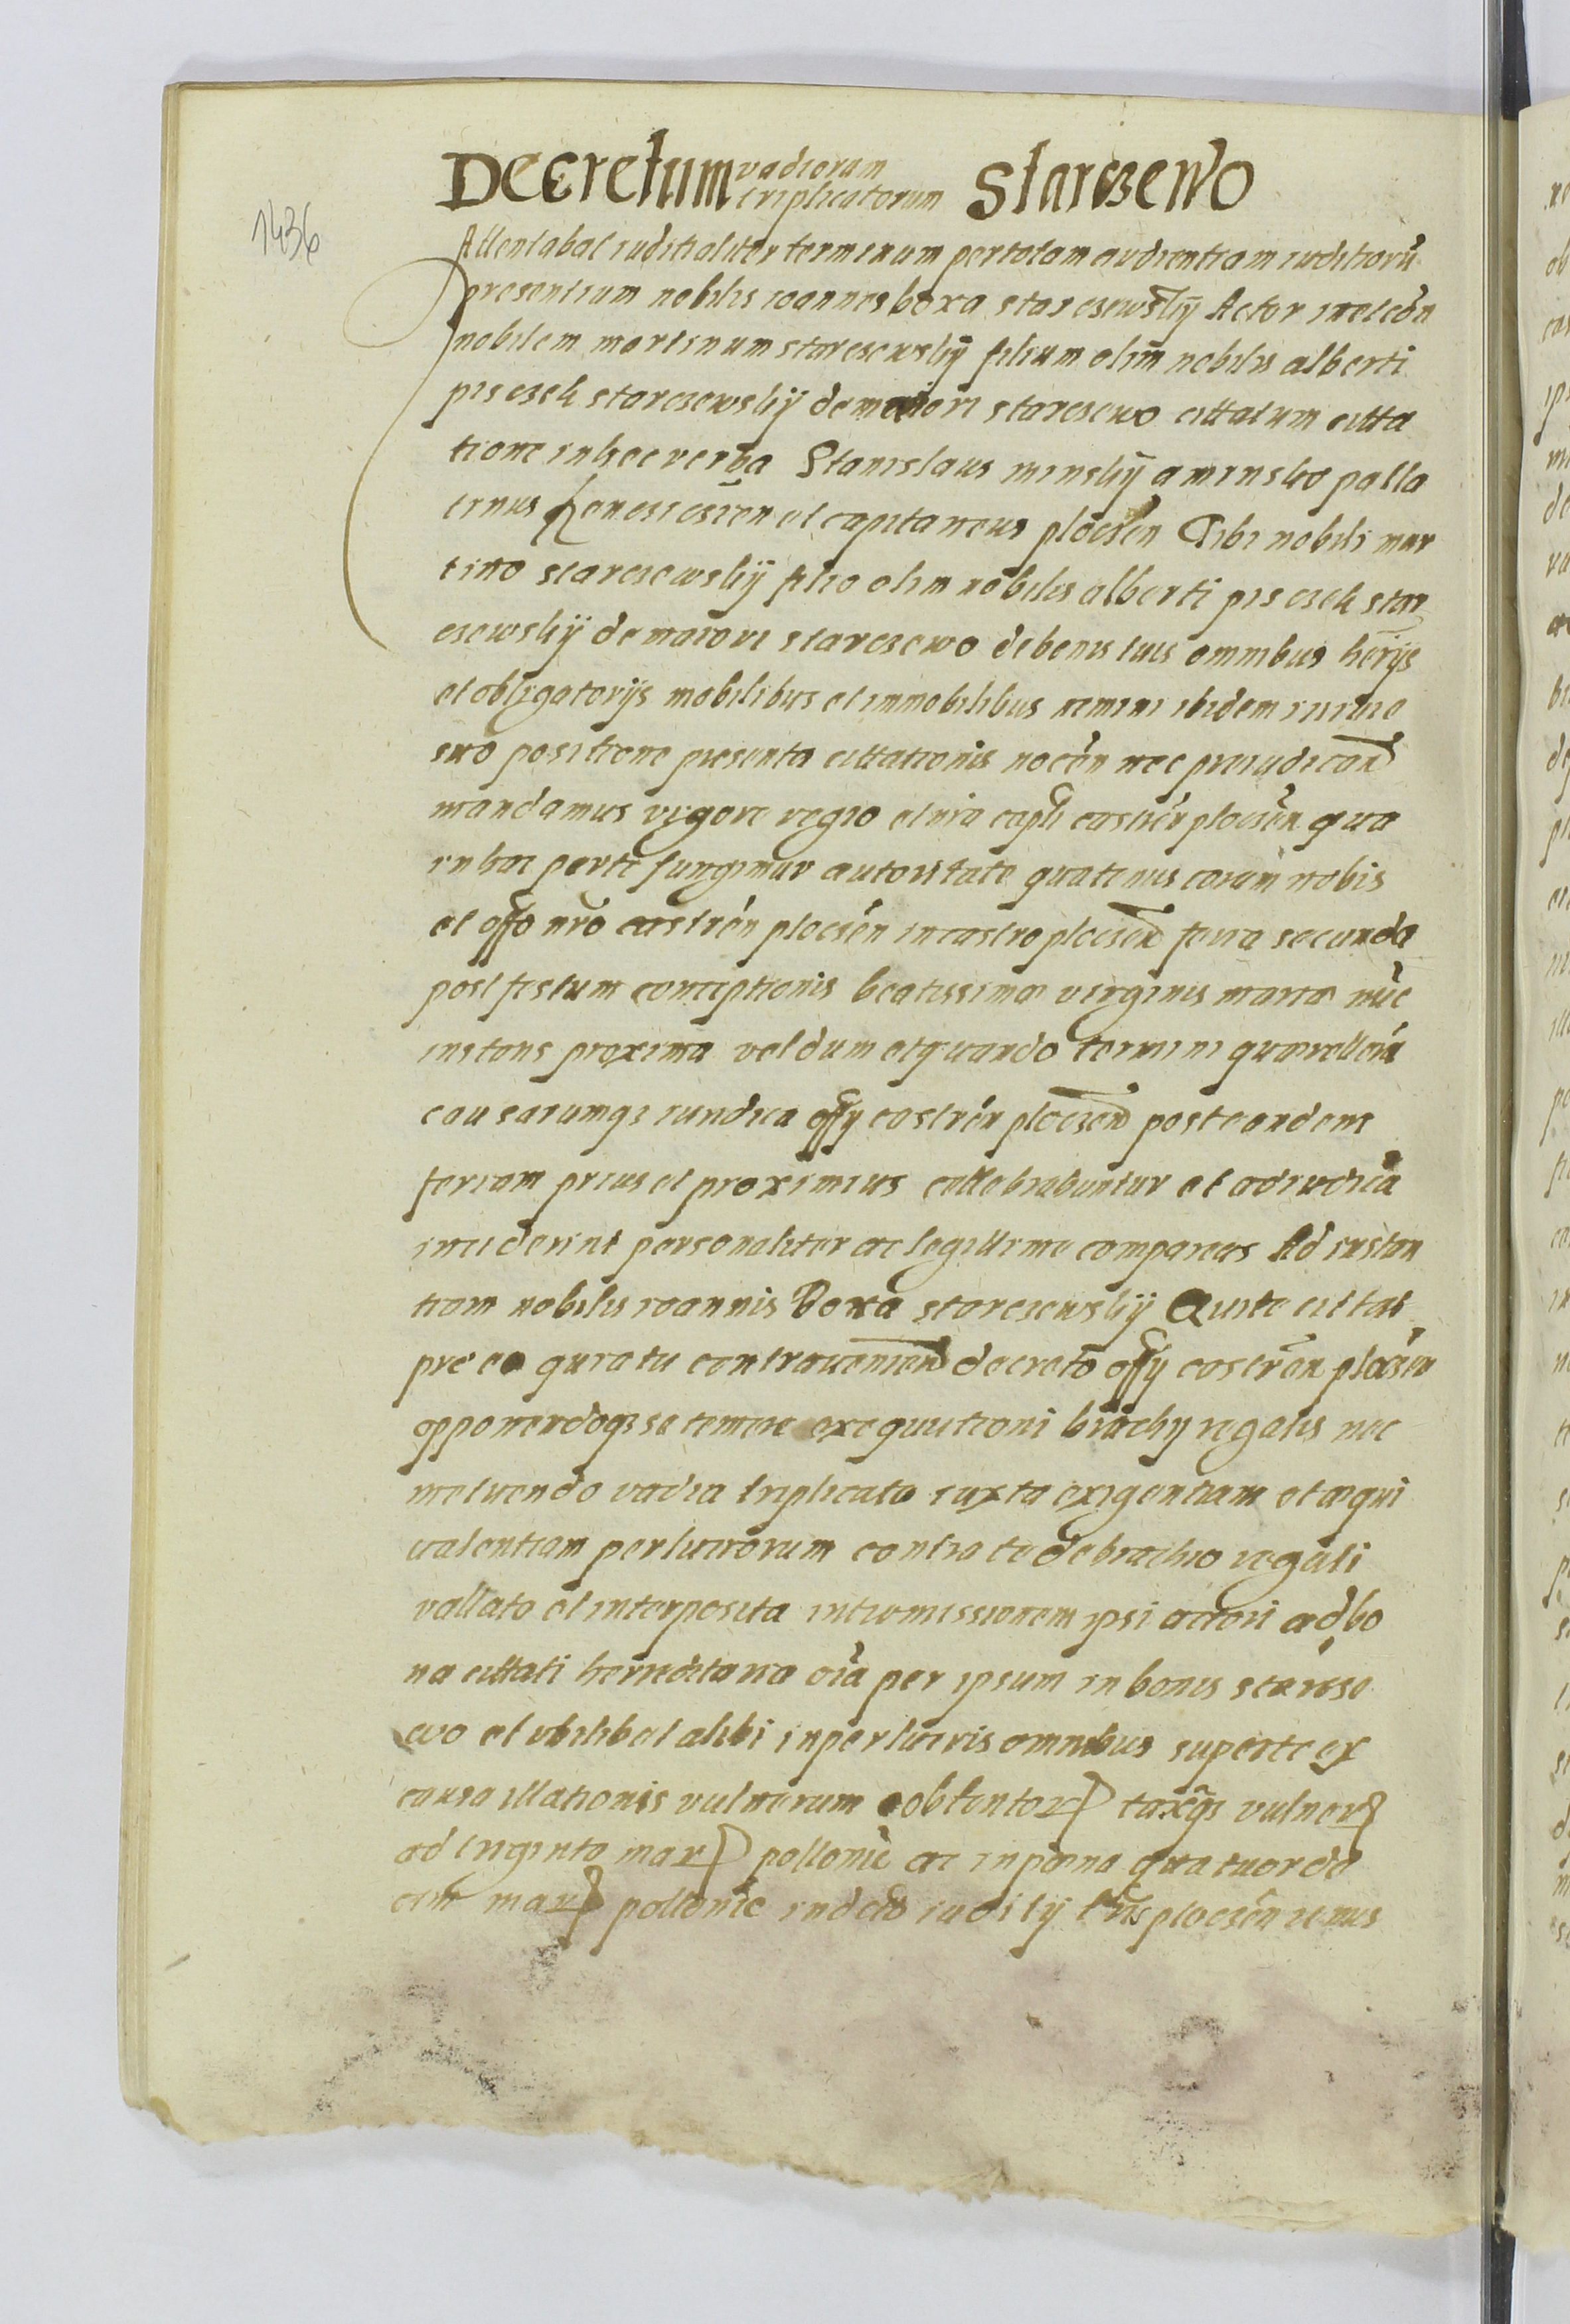 Decretum vadiorum triplicatorum Starczewo
1436
Attentabat iuditialiter terminum per totam audientiam iuditiorū
presentium nobilis ioannes boxa starczewskij Actor in et cōn
nobilem martinum starczewskij filium olim nobilis alberti
pisczek starczewskij de maiori starczewo cittatum citta
tione in hec verba Stanislaus minskij a minsko palla
tinus et capitaneus ploczen Tibi nobili mar
tino starczewskij filio olim nobilis alberti pisczek star
czewskij de maiori starczewo de bonis tuis omnibus herijs
et obligatorijs mobilibus et immobilibus nemini ibidem in iure
suo positione presentis cittationis nocēn nec preiudican
mandamus vigore regio et nra capli castreń ploczēn qua
in hac parte fungimur autoritate quatenus coram nobis
et offo nrō castrēn ploczēn in castro ploczen feria secunda
post festum conceptionis beatissimæ virginis mariæ nūc
instans proxima vel dum et quando termini quærellarū
causarumqȝ iuridica offy castrēn ploczen post eandem
feriam prius et proximius cellebrabuntur et adiudicā
inciderint personaliter ac legittime compareas Ad instan
tiam nobilis ioannis Boxa starczewskij Qui te cittat
pro eo quia tu contraveniendō decretō offy castrēn ploczēn
opponendoqȝ se temere exequutioni brachy regalis nec
metuendo vadia triplicata iuxta exigentiam et æqui
valentiam perlucrorum contra te de brachio regali
vallato et interposita intromissionem ipsi actori ad bo
na cittati hærreditaria oīa per ipsum in bonis starcze
wo et ubilibet alibi in perlucris omnibus super te ex
causa illationis vulnerum obtentorꝝ taxqȝ vulnerꝝ
ad triginta marꝝ pollonic ac in pæna quatuorde
cim marꝝ pollonic in dcto iuditij tris ploczēn